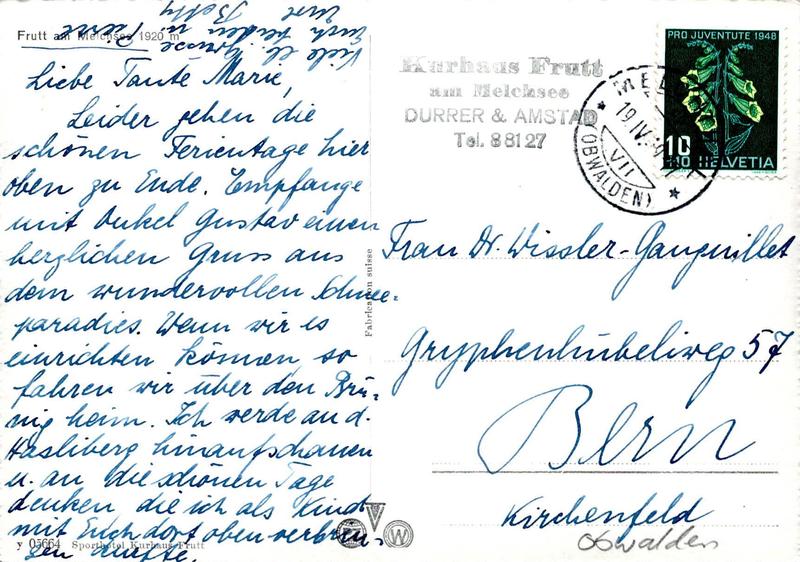 Frutt am Melchsee 1920 m
Liebe Tante Marie,
Leider gehen die
schönen Ferientage hier
oben zu Ende. Empfange
mit Onkel Gustav einen
herzlichen Gruss aus
dem wundervollen Schnee=
paradies. Wenn wir es
einrichten können, so
fahren wir über den Brü-
nig heim. Ich werde an d.
Hasliberg hinaufschauen
u. an die schönen Tage
denken die ich als Kind
mit Euch dort oben verbrin-
gen durfte.
Viele l. Grüsse
Euch beiden v.
Betty
y 05664 Sporthotel Kurhaus Frutt
Fabrication suisse
Kurhaus Frutt
am Melchsee
DURRER & AMSTAD
Tel. 88127
19.IV.
VII
(OBWALDEN)
PRO JUVENTUTE 1948
10
+10 HELVETIA
Frau Dr. Wissler-Ganguillet
Gryphenhübeliweg 57
Bern
Kirchenfeld
Obwalden
W